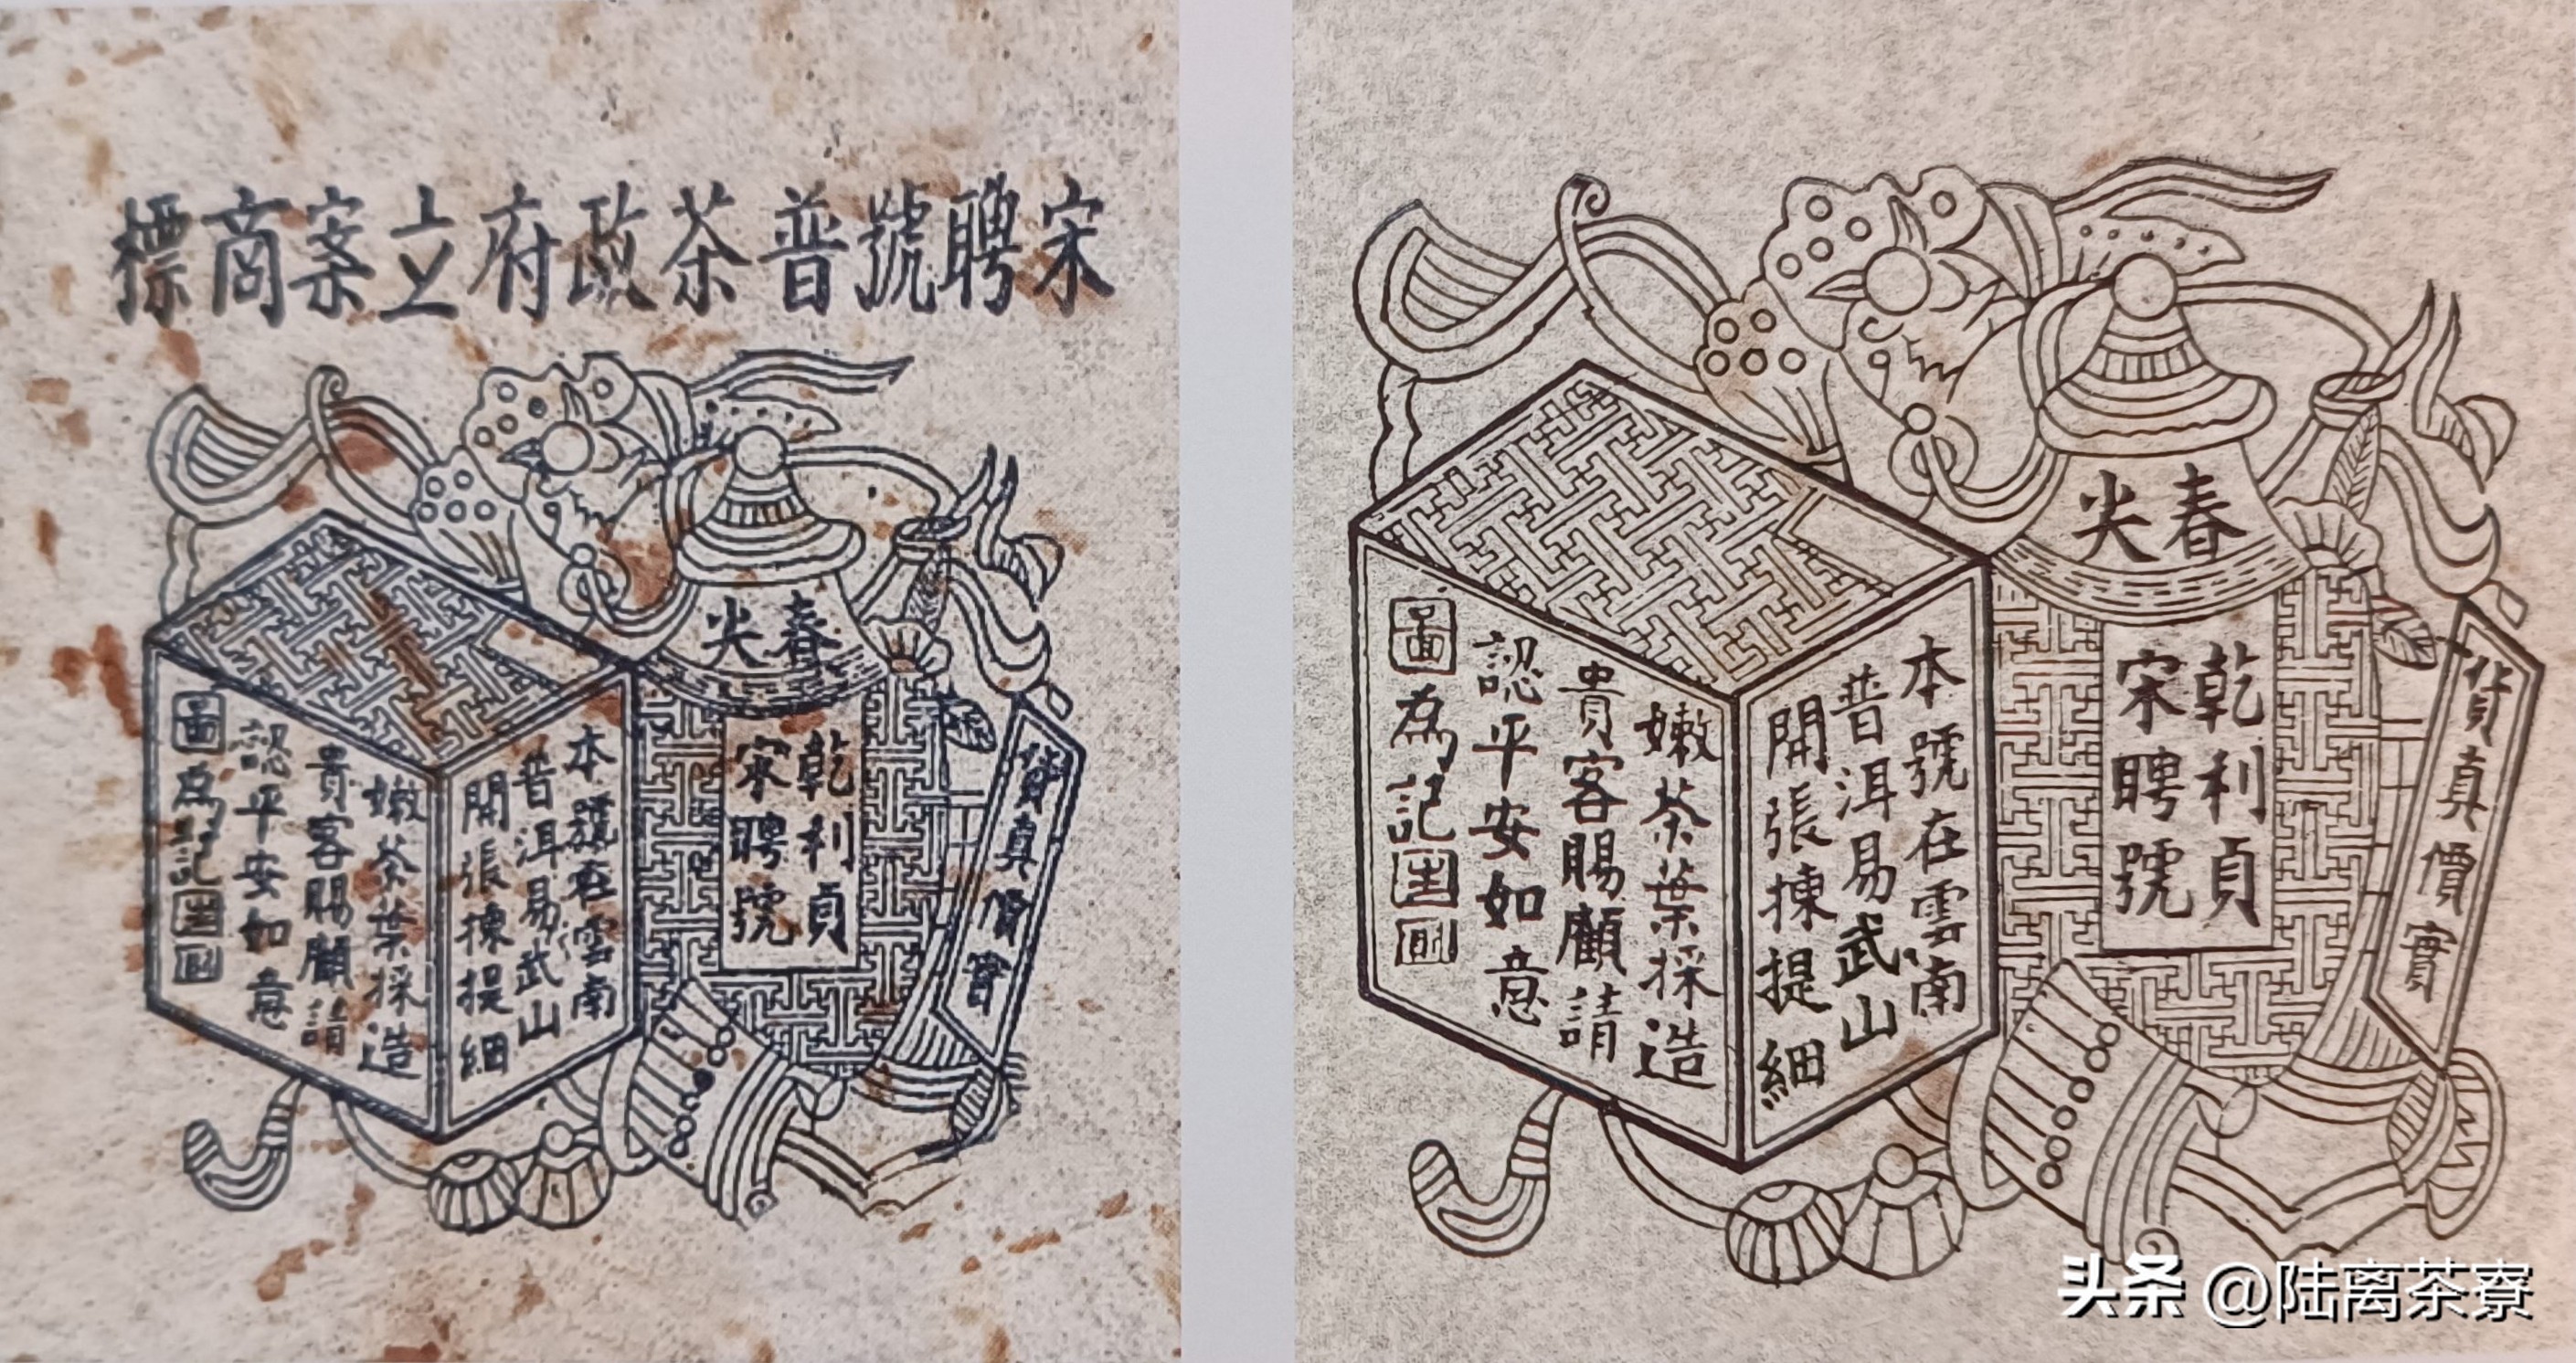 宋聘號普茶政府立案商標
春尖
乾利貞
宋聘號
貨真價實
本號在雲南
普洱易武山
開張揀提細
嫩茶葉採造
貴客賜顧請
認平安如意
圖為記
春尖
乾利貞
宋聘號
貨真價實
本號在雲南
普洱易武山
開張揀提細
嫩茶葉採造
貴客賜顧請
認平安如意
圖為記
头条 @陆离茶寮